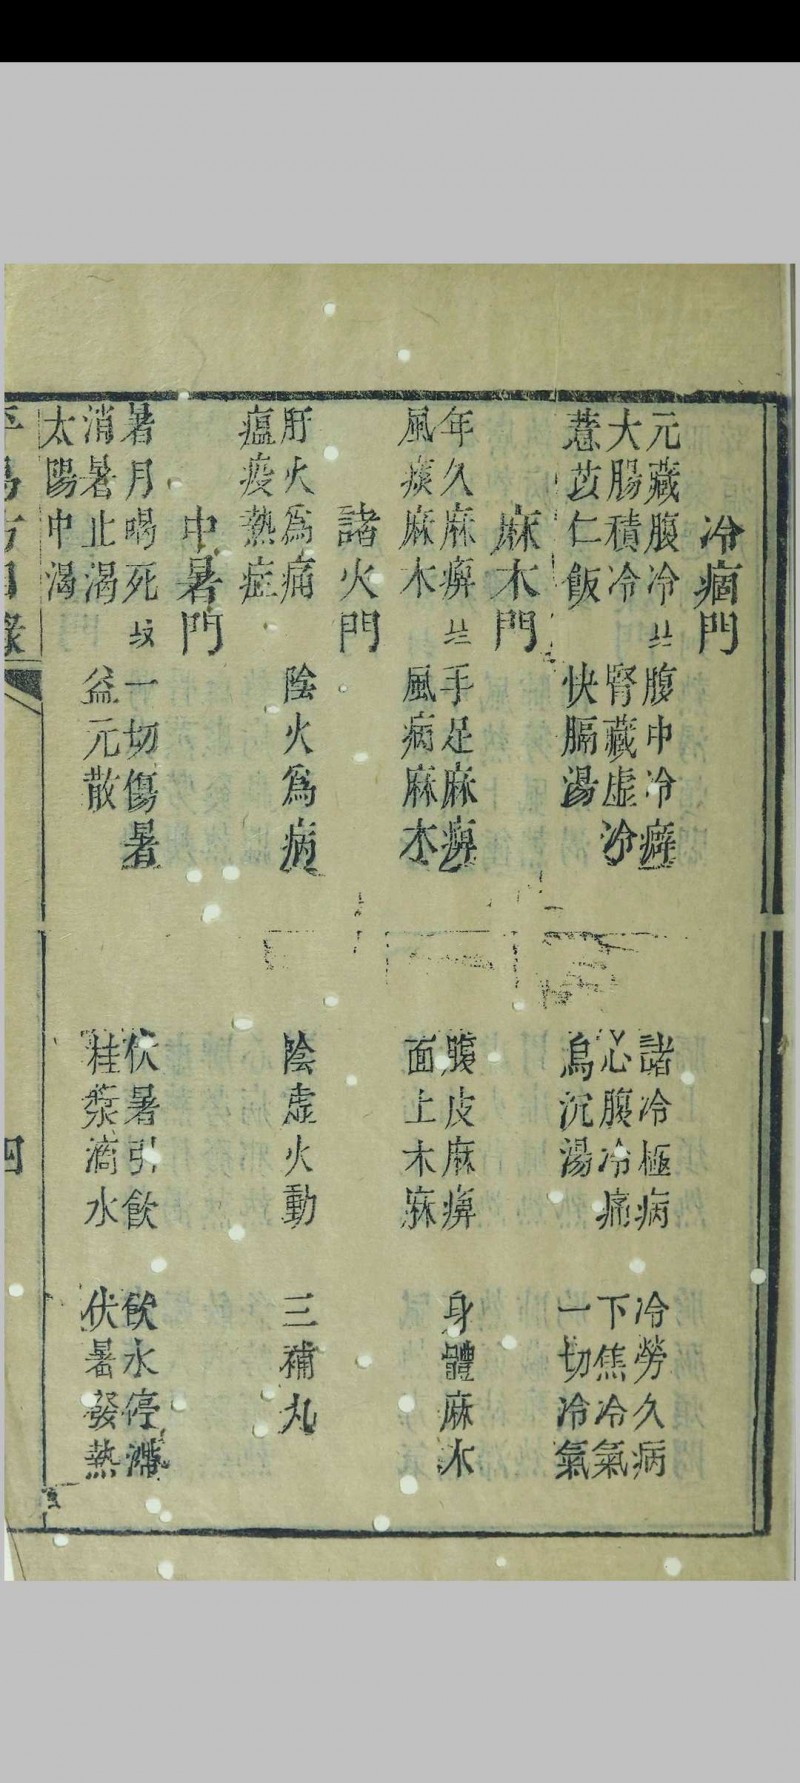 冷痼門
元藏腹冷　腹中冷癖　諸冷極病　冷勞久病
大腸積冷　腎藏虛冷　心腹冷痛　下焦冷氣
薏苡仁飯　快膈湯　烏沉湯　一切冷氣
麻木門
年久麻痹　手足麻痹　腹皮麻痹　身體麻木
風痰麻木　風病麻木　面上木麻
諸火門
肝火爲痛　陰火爲病　陰虛火動　三補丸
瘟疫熱症
中暑門
暑月暍死　一切傷暑　伏暑引飲　飲水停滯
消暑止渴　益元散　桂漿滴水　伏暑發熱
太陽中渴
四